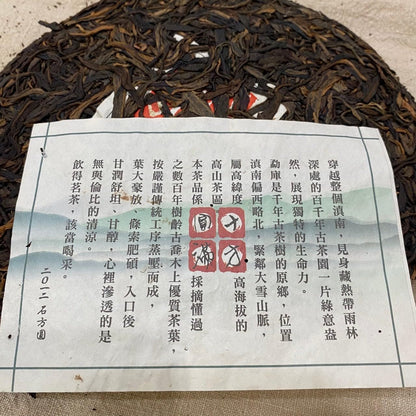 穿越整個滇南，見身藏熱帶雨林
深處的百千年古茶園一片綠意盎
然，展現獨特的生命力。
勐庫是千年古茶樹的原鄉，位置
滇南偏西略北，緊鄰大雪山脈，
屬高緯度 高海拔的
高山茶區
本茶品係 採摘懂過
之數百年樹齡古喬木上優質茶葉，
按嚴謹傳統工序蒸壓而成，
葉大豪放、條索肥碩，入口後
甘潤舒坦、甘醇，心裡滲透的是
無與倫比的清涼。
飲得茗茶，該當喝采。
二〇一二石方圓